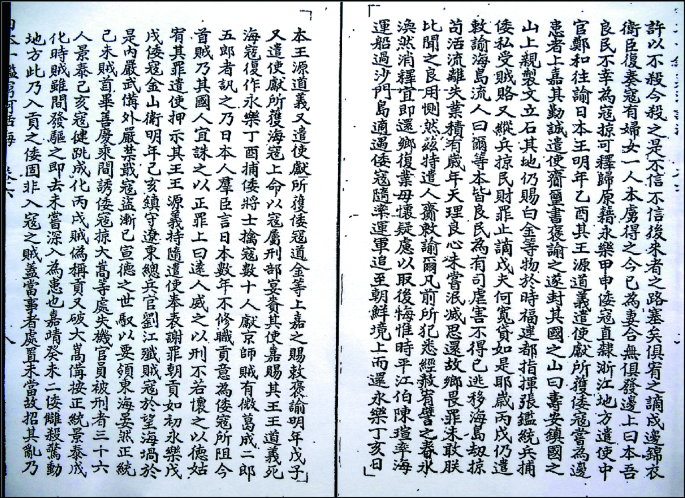 許以不殺今殺之是不信不信後來者之路塞矣俱宥之謫戍邊錦衣
衛臣復奏寇有婦女一人本虜得之今已為妻合無俱發邊上曰本吾
良民不幸為寇掠可釋歸原籍永樂甲申倭寇直隸浙江地方遣使中
官鄭和往諭日本王明年乙酉其王源道義遣使獻所獲倭寇嘗為邊
患者上嘉其勤誠遣使齎璽書褒諭之遂封其國之山曰壽安鎮國之
山上親製文立石其地仍賜白金等物於時福建都指揮張鑑統兵捕
倭私受賊賂又縱兵掠民財罪止謫戍夫何寬貸如是耶歲丙戌仍遣
敕諭海島流人曰爾等本皆良民為有司虐害不得已逃移海島劫掠
苟活流離失業積有歲年天理良心未嘗泯滅思還故鄉畏罪未敢朕
比聞之良用惻然茲特遣人齎敕諭爾凡前所犯悉經赦宥譬之春水
渙然消釋宜即還鄉復業毋懷疑慮以取後悔惟時平江伯陳瑄率海
運船過沙門島適遇倭寇隨率運軍追至朝鮮境上而還永樂丁亥日
本王源道義又遣使獻所獲倭寇道金等上嘉之賜敕褒諭明年戊子
又遣使獻所獲海寇上命以寇屬刑部宴賚其使嘉賜其王王道義死
海寇復作永樂丁酉捕倭將士擒寇數十人獻京師賊有微葛成二郎
五郎者訊之乃日本人羣臣言日本數年不修職貢意為倭寇所阻今
首賊乃其國人宜誅之以正罪上曰遠人威之以刑不若懷之以德姑
宥其罪遣使押示其王王源義持隨遣使奉表謝罪朝貢如初永樂戊
戌倭寇金山衛明年己亥鎮守遼東總兵官劉江殲賊寇於望海堝於
是內嚴武備外嚴禁戢寇盜漸已宣德之世馭以要領東海晏然正統
己未賊首畢善慶乘間誘倭寇掠大嵩等處失機官員被刑者三十六
人景泰己亥寇健跳成化丙戌賊偽稱貢又破大嵩備按正統景泰成
化時賊雖間發驅之即去未嘗深入為患也嘉靖癸未二倭讎殺驚動
地方此乃入貢之倭固非入寇之賊蓋當事者處置未當故招其亂乃